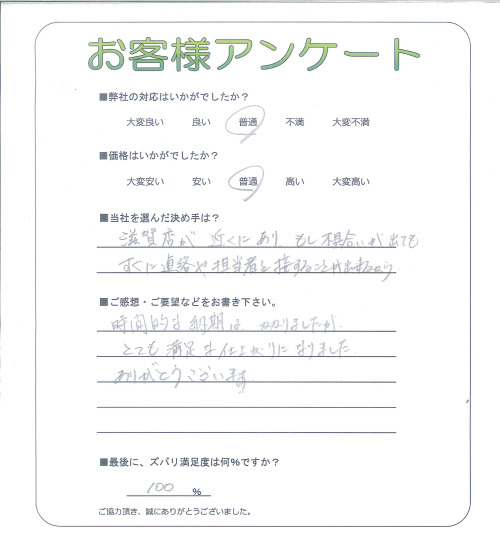 お客様アンケート
■弊社の対応はいかがでしたか？
大変良い 良い 普通 不満 大変不満
■価格はいかがでしたか？
大変安い 安い 普通 高い 大変高い
■当社を選んだ決め手は？
滋賀店が 近くにあり もし不具合いが出ても
すぐに連絡や担当者と接することが出来る
■ご感想・ご要望などをお書き下さい。
時間的な納期は かかりましたが、
とても 満足な仕上がりになりました。
ありがとうございます。
■最後に、ズバリ満足度は何％ですか？
100 ％
ご協力頂き、誠にありがとうございました。